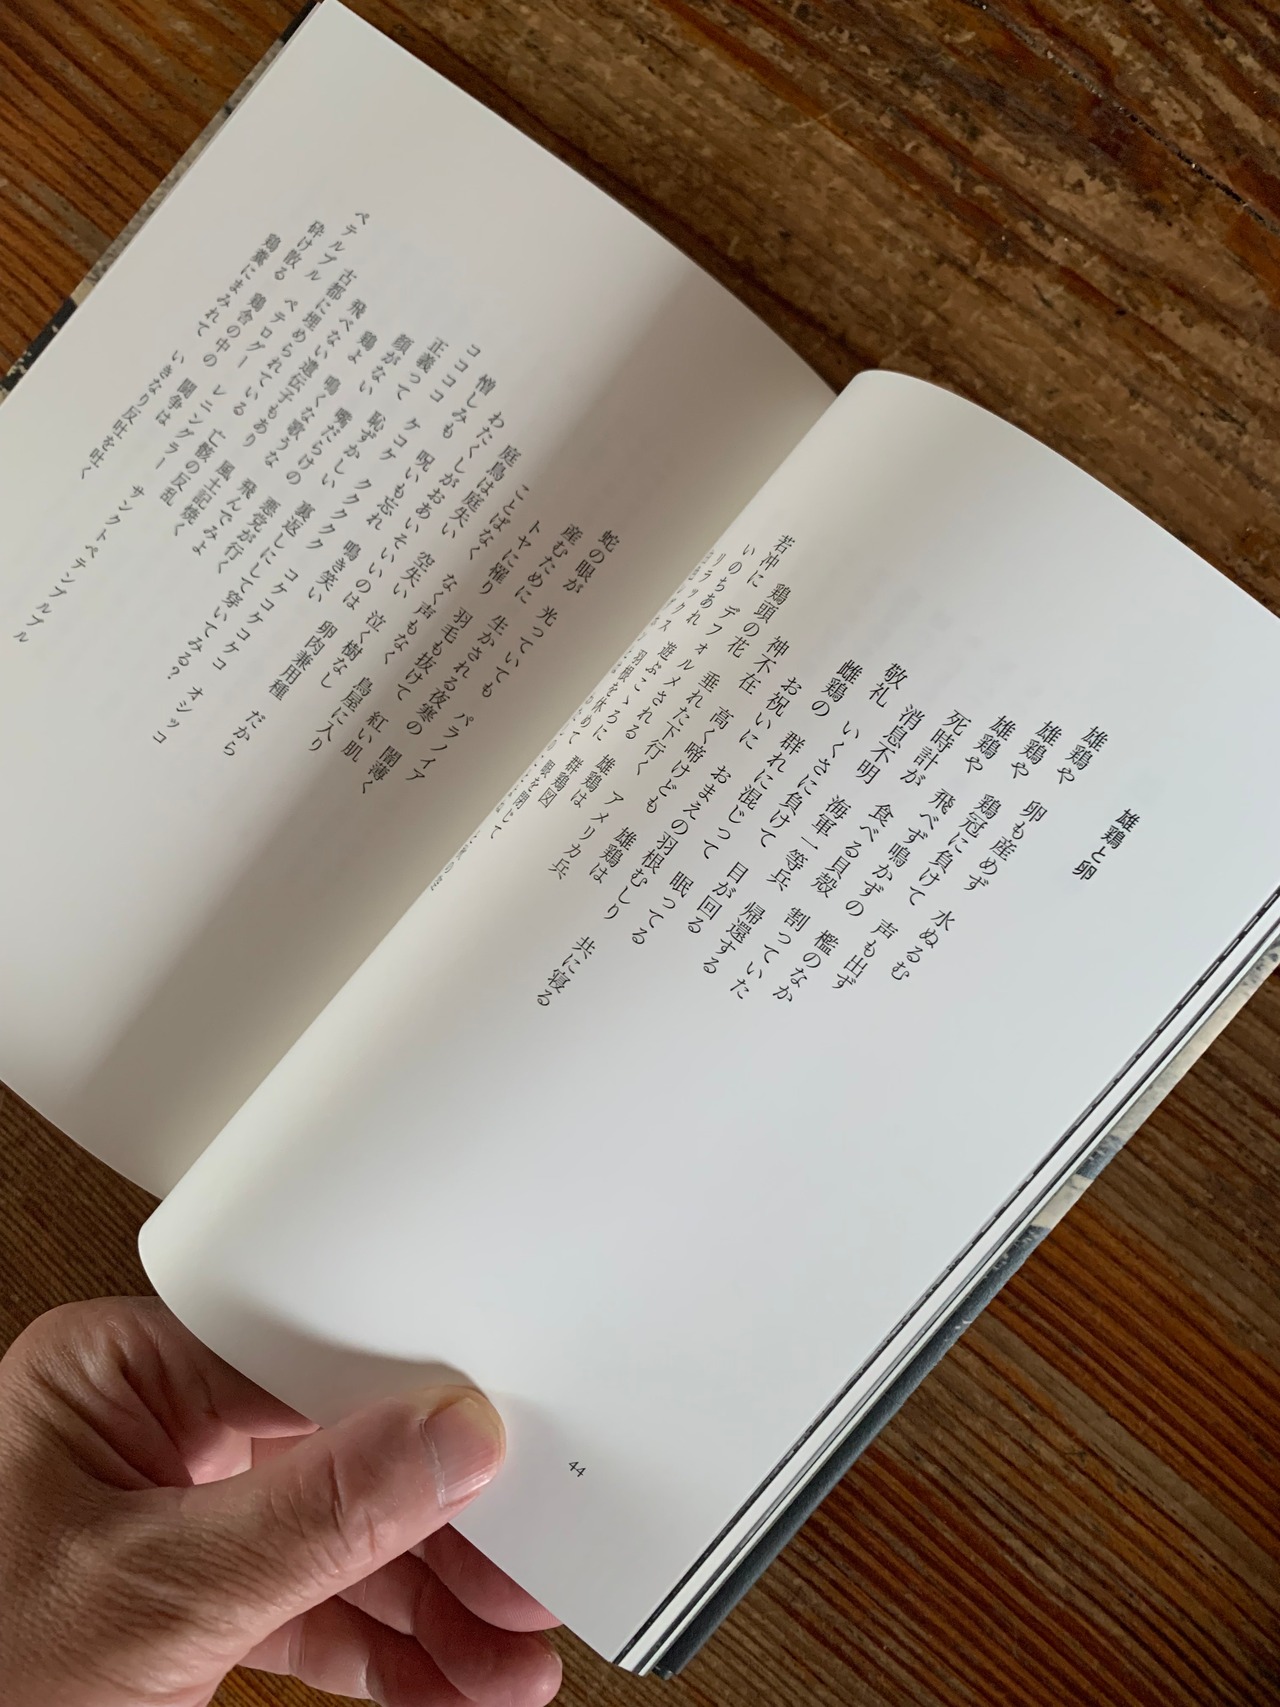 雄鶏と卵
雄鶏や 卵も産めず 水ぬるむ
雄鶏や 鶏冠に負けて 声も出ず
雄鶏や 飛べず鳴かずの 檻のなか
死時計が 食べる貝殻 割っていた
消息不明 海軍一等兵 帰還する
敬礼 いくさに負けて 目が回る
雌鶏の 群れに混じって 眠ってる
お祝いに おまえの羽根むしり 共に寝る
神不在 高く啼けども 雄鶏は
鶏頭の花 垂れた下行く アメリカ兵
若冲に デフォルメされる 雄鶏は
いのちあれ 遊ぶこゝろに 群鶏図
眼を閉じて
44
蛇の眼が 光っていても パラノイア
産むために 生かされる夜寒の 闇薄く
トヤに罹り 羽毛も抜けて 紅い肌
ことばなく なく声もなく 鳥屋に入り
庭鳥は庭失い 空失い 泣く樹なし
わたくしが おあいそいいのは 卵肉兼用種 だから
憎しみも 呪いも忘れ 鳴き笑い
ココココ ケコケ ククククク コケコケコケコ オシッコ
正義って 恥ずかしい 裏返しにして穿いてみる?
顔がない 嘴だらけの 悪党が行く
鶏よ 鳴くな歌うな 飛んでみよ
飛べない遺伝子もあり 風土記焼く
古都に埋められている 亡骸の反乱
ペテルブル ペテログー レニングラー サンクトペテンブルブル
砕け散る 鶏舎の中の 闘争は
鶏糞にまみれて いきなり反吐を吐く